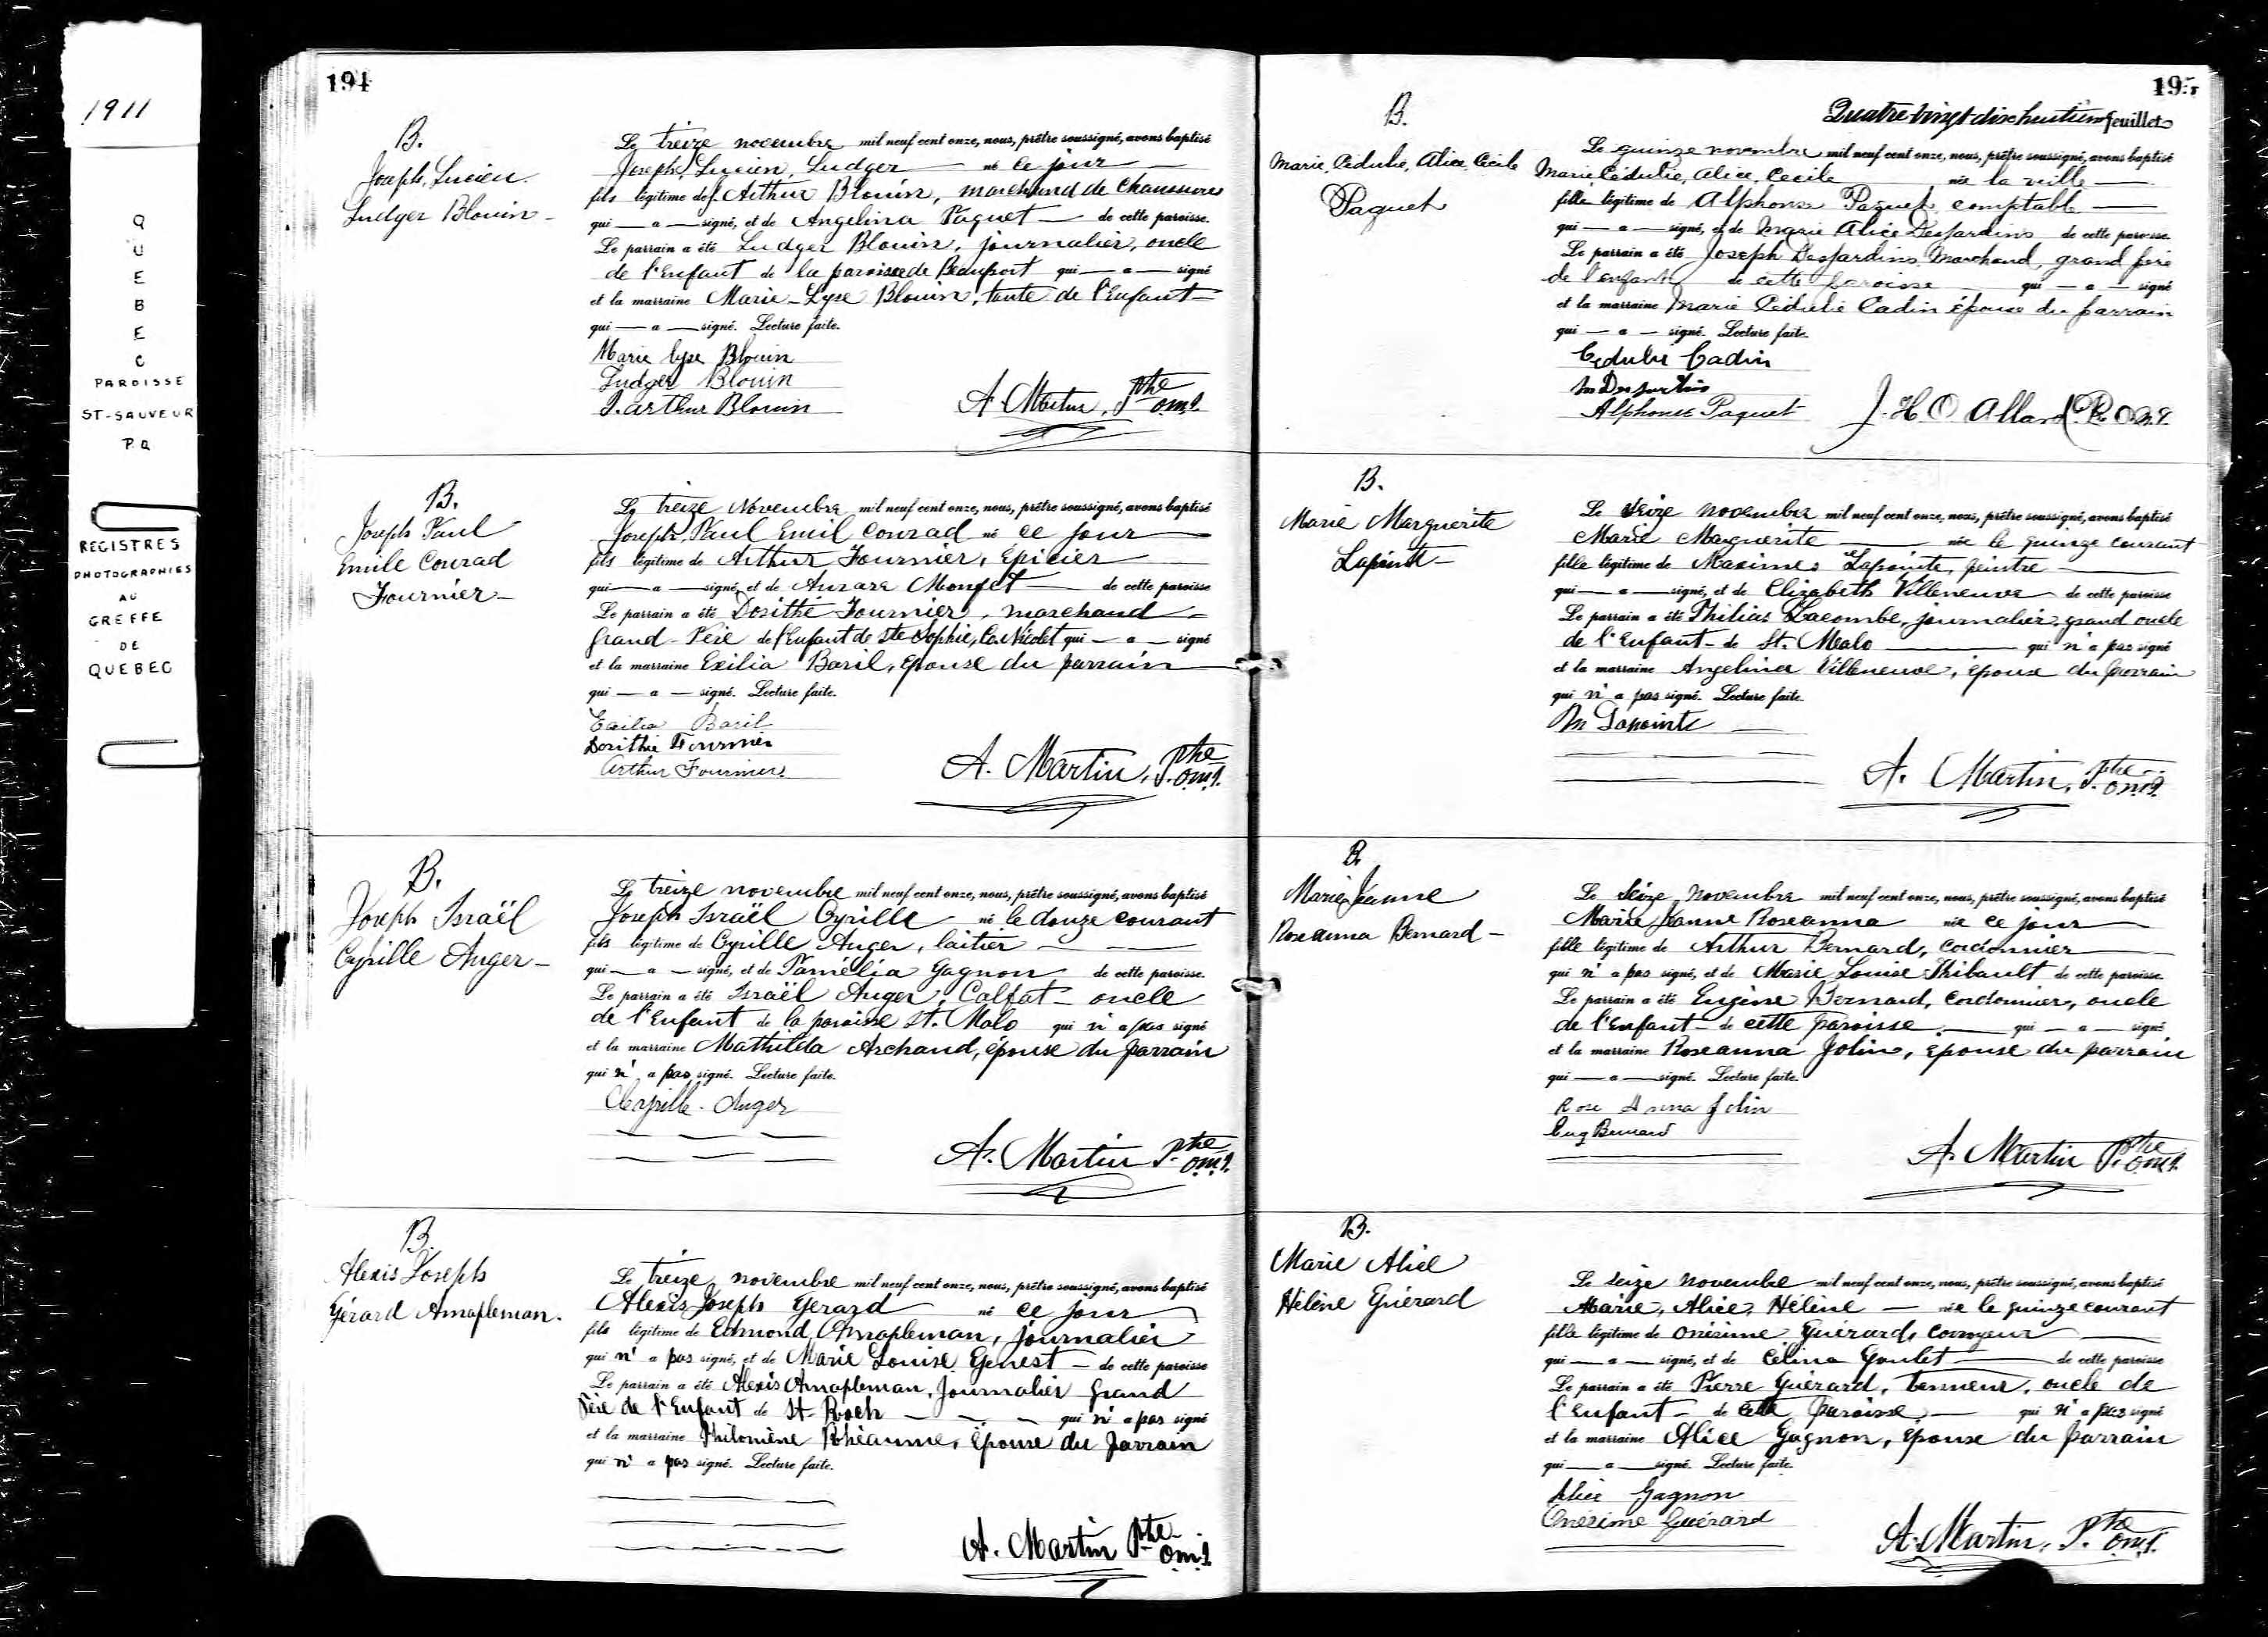 1911
QUEBEC
PAROISSE
ST-SAUVEUR
P.Q
REGISTRES
PHOTOGRAPHIES
AU
GREFFE
DE
QUEBEC
194
B.
Joseph, Lucien
Ludger Blouin
Le treize novembre mil neuf cent onze, nous, prêtre soussigné, avons baptisé
Joseph, Lucien, Ludger né ce jour
fils légitime de J. Arthur Blouin, marchand de chaussures
qui — a — signé, et de Angelina Paquet — de cette paroisse.
Le parrain a été Ludger Blouin, journalier, oncle
de l'Enfant de la paroisse de Beauport qui — a — signé
et la marraine Marie-Lyse Blouin, tante de l'Enfant
qui — a — signé. Lecture faite.
Marie Lyse Blouin
Ludger Blouin
J. Arthur Blouin
A. Martin, Ptre o.m.i.
B.
Joseph Paul
Emile Conrad
Fournier
Le treize Novembre mil neuf cent onze, nous, prêtre soussigné, avons baptisé
Joseph Paul Emil Conrad né ce jour
fils légitime de Arthur Fournier, Épicier
qui — a — signé, et de — de cette paroisse
Le parrain a été Dosithé Fournier, marchand
Grand-Père de l'Enfant de Ste Sophie, Co. Nicolet qui — a — signé
et la marraine Exilia Baril, Épouse du parrain
qui — a — signé. Lecture faite.
Exilia Baril
Dosithé Fournier
Arthur Fournier
A. Martin, Ptre o.m.i.
B.
Joseph Israël
Cyrille Auger
Le treize novembre mil neuf cent onze, nous, prêtre soussigné, avons baptisé
Joseph Israël Cyrille né le douze courant
fils légitime de Cyrille Auger, laitier
qui — a — signé, et de Pamélia Gagnon de cette paroisse.
Le parrain a été Israël Auger, Calfat oncle
de l'Enfant de la paroisse St. Malo qui n'a pas signé
et la marraine Mathilda Archand, épouse du parrain
qui n'a pas signé. Lecture faite.
Cyrille Auger
A. Martin Ptre o.m.i.
B.
Alexis Joseph
Gérard Amapleman.
Le treize novembre mil neuf cent onze, nous, prêtre soussigné, avons baptisé
Alexis Joseph Gerard né ce jour
fils légitime de Edmond Amapleman, journalier
qui n'a pas signé, et de Marie Louise Genest — de cette paroisse
Le parrain a été Alexis Amapleman, Journalier Grand
Père de l'Enfant de St-Roch — qui n'a pas signé
et la marraine Philomène Rhéaume, Épouse du parrain
qui n'a pas signé. Lecture faite.
A. Martin Ptre o.m.i.
195
Quatre-vingt dix huitième feuillet
B.
Marie, Cédulie, Alice, Cécile
Paquet
Le quinze novembre mil neuf cent onze, nous, prêtre soussigné, avons baptisé
Marie, Cédulie, Alice, Cecile née la veille
fille légitime de Alphonse Paquet, comptable
qui — a — signé, et de Marie Alice Desjardins de cette paroisse.
Le parrain a été Joseph Desjardins, Marchand, grand père
de l'enfant de cette paroisse qui — a — signé
et la marraine Marie Cédulie Cadin épouse du parrain
qui — a — signé. Lecture faite.
Cédulie Cadin
Desjardins
Alphonse Paquet
J. H. O. Allard P. O.M.I.
B.
Marie Marguerite
Lapointe
Le seize novembre mil neuf cent onze, nous, prêtre soussigné, avons baptisé
Marie Marguerite née le quinze courant
fille légitime de Maxime Lapointe, peintre
qui — a — signé, et de Elizabeth Villeneuve de cette paroisse
Le parrain a été Philias Lacombe, journalier, grand oncle
de l'Enfant de St. Malo qui n'a pas signé
et la marraine Angelina Villeneuve, épouse du parrain
qui n'a pas signé. Lecture faite.
M Lapointe
A. Martin, Ptre o.m.i.
B.
Marie Jeanne
Roseanna Bernard
Le seize Novembre mil neuf cent onze, nous, prêtre soussigné, avons baptisé
Marie Jeanne Roseanna née ce jour
fille légitime de Arthur Bernard, Cordonnier
qui n'a pas signé, et de Marie Louise Thibault de cette paroisse.
Le parrain a été Eugène Bernard, cordonnier, oncle
de l'Enfant de cette Paroisse. — qui — a — signé
et la marraine Roseanna Jolin, Épouse du parrain
qui — a — signé. Lecture faite.
Rose Anna Jolin
Eug Bernard
A. Martin Ptre o.m.i.
B.
Marie Alice
Hélène Guérard
Le seize novembre mil neuf cent onze, nous, prêtre soussigné, avons baptisé
Marie, Alice, Hélène — née le quinze courant
fille légitime de Onésime Guérard, corroyeur
qui — a — signé, et de Célina Goulet — de cette paroisse
Le parrain a été Pierre Guérard, tanneur, oncle de
l'Enfant de cette paroisse, — qui n'a pas signé
et la marraine Alice Gagnon, Epouse du Parrain
qui — a — signé. Lecture faite.
Alice Gagnon
Onésime Guérard
A. Martin, Ptre o.m.i.